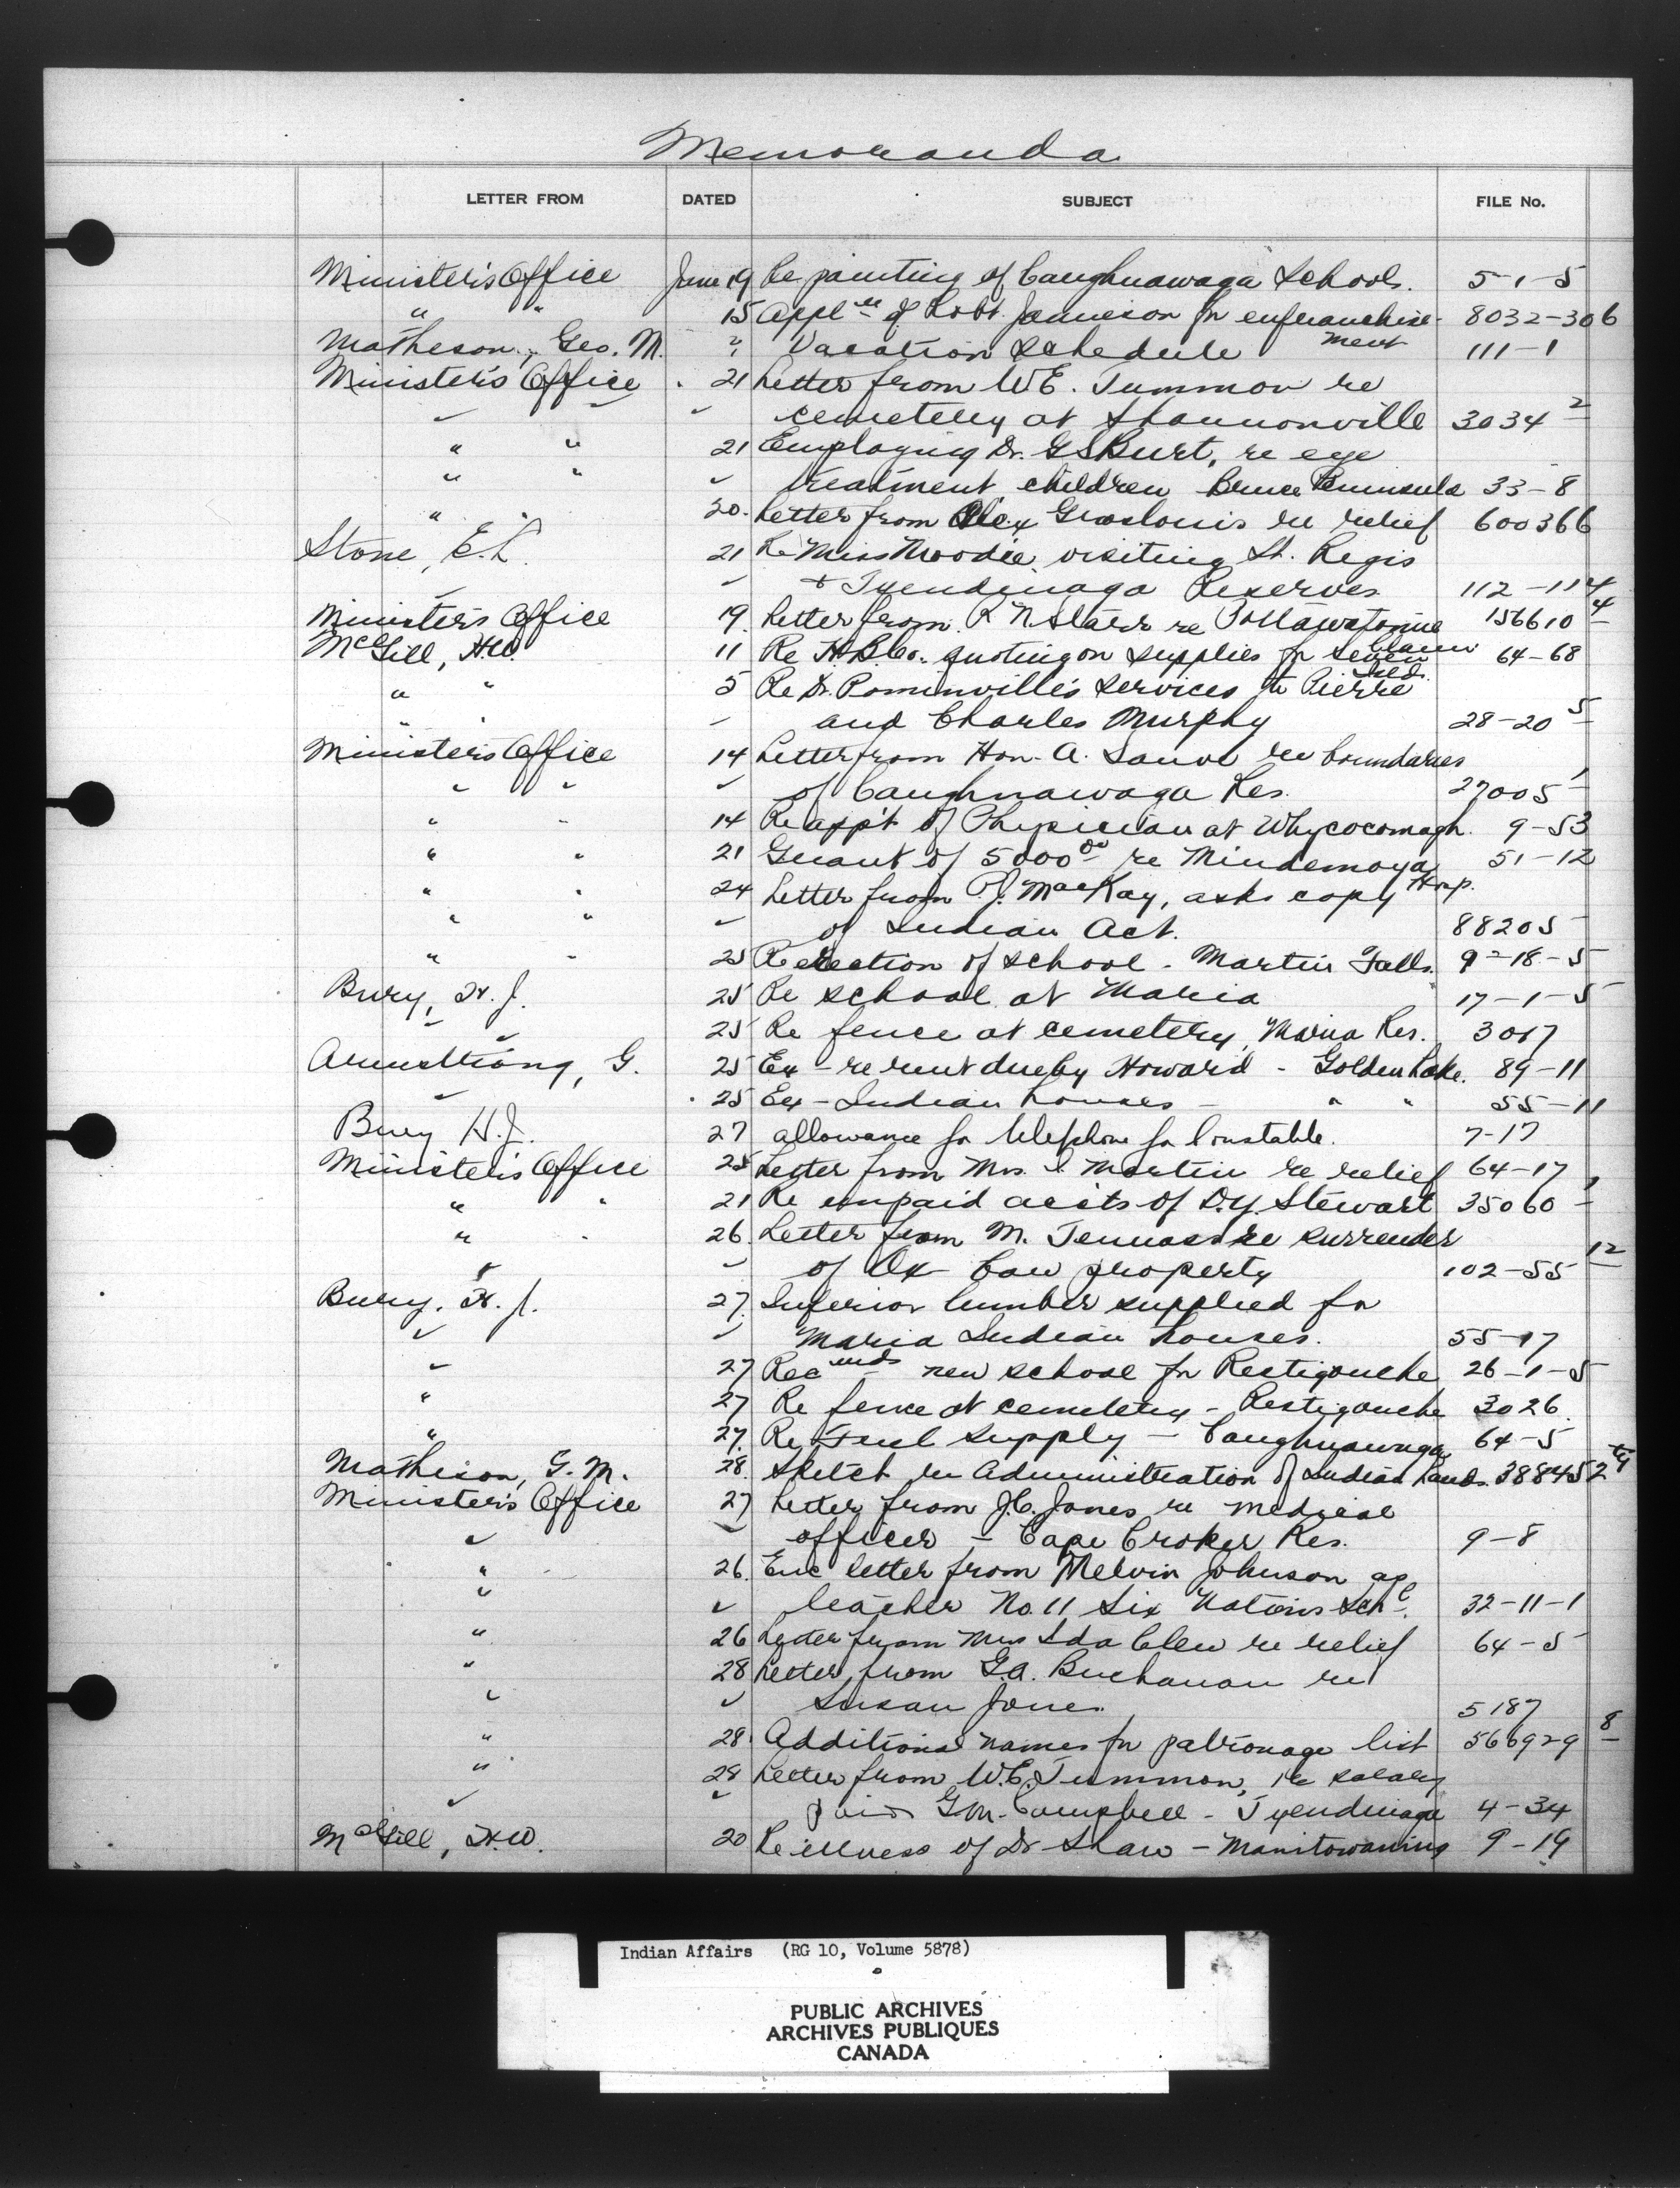 Memoranda
LETTER FROM DATED SUBJECT FILE No.
Minister's Office June 19 Re painting of Caughnawaga Schools. 5-1-5
" " 15 Appl'n of Robt. Jamieson for enfranchise- 8032-306
ment
Matheson, Geo. M. " Vacation Schedule 111-1
Minister's Office . 21 Letter from W.E. Tummon re
" " " cemetery at Shannonville 3034 2
" " 21 Employing Dr. G S Burt, re eye
" " " treatment children Bruce Peninsula 33-8
" 20. Letter from Alex Groslouis re relief 600366
Stone, E.L. 21 Re Miss Moodie visiting St. Regis
" " + Tyendinaga Reserves 112-114
Minister's Office 19. Letter from R N Starr re Pottawatomie 156610 4
Claim
McGill, H.W. 11 Re H.B.Co. quoting on supplies for seven 64-68
Inds.
" " 5 Re Dr. Pominville's services to Pierre
" " " and Charles Murphy 28-20 5
Minister's Office 14 Letter from Hon. A. Sauve re boundaries
" " " of Caughnawaga Res. 27005 1
" " 14 Re app't of Physician at Whycocomagh. 9-53
" " 21 Grant of 5000 00 re Mindemoya 51-12
Hosp.
" " 24 Letter from P.J. MacKay, asks copy
" " " of Indian Act. 88205
" " 25 Re erection of school - Martin Falls. 9-18-5
Bury, H. J. 25 Re school at Maria 17-1-5
" " 25 Re fence at cemetery, Maria Res. 3017
Armstrong, G. 25 Ex - re rent due by Howard - Golden Lake. 89-11
" . 25 Ex - Indian houses - " " 55-11
Bury H.J. 27 allowance for telephone for Constable. 7-17
Minister's Office 25 Letter from Mrs. I Martin re relief 64-17
" " 21 Re unpaid accts of D.Y. Stewart 35060 1
" " 26. Letter from M. Tennass re surrender
" " of Ox Cow property 102-55 12
Bury, H. J. 27. Inferior lumber supplied for
" " Maria Indian houses. 55-17
" 27 Recmds new school for Restigouche 26-1-5
" 27 Re fence at cemetery - Restigouche 3026.
" 27. Re Fuel supply - Caughnawaga 64-5
Matheson, G. M. 28. Sketch re Administration of Indian Lands. 388452
Minister's Office 27 Letter from J.C. Jones re medical
" " officer - Cape Croker Res. 9-8
" 26. Enc letter from Melvin Johnson as
" " teacher No. 11 Six Nations Schl. 32-11-1
" 26 Letter from Mrs Ida Clew re relief 64-5
" 28 Letter from G.A. Buchanan re
" " Susan Jones. 5187
" 28. Additional names for patronage list 566929 8
" 28 Letter from W.E. Tummon, re salary
" " paid G.M. Campbell - Tyendinaga 4-34
McGill, H.W. 20 Re illness of Dr Shaw - Manitowaning 9-19
Indian Affairs (RG 10, Volume 5878)
PUBLIC ARCHIVES
ARCHIVES PUBLIQUES
CANADA